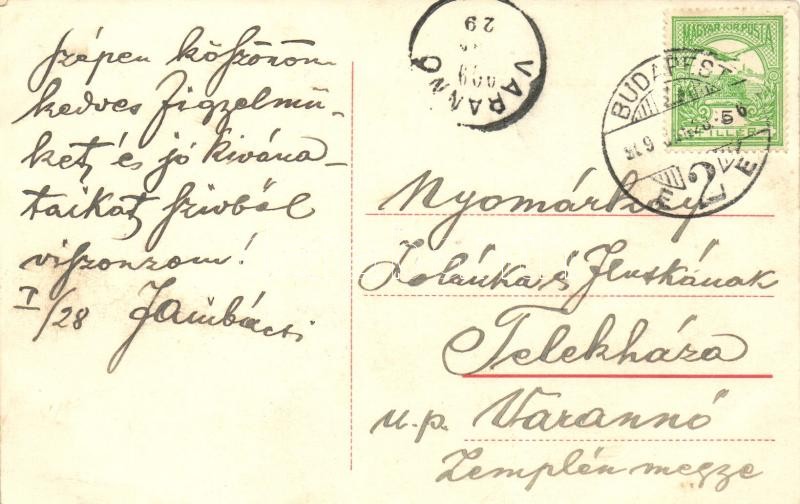 szépen köszönöm
kedves figyelmü-
ket, és jó kivána-
taikat szivböl
viszonzom!
I/28 Janibácsi
VARANNÓ
909
29
MAGYAR KIR. POSTA
FILLÉR
BUDAPEST
2
Nyomárkay
Zolánka és Iluskának
Telekháza
u.p. Varannó
Zemplén megye